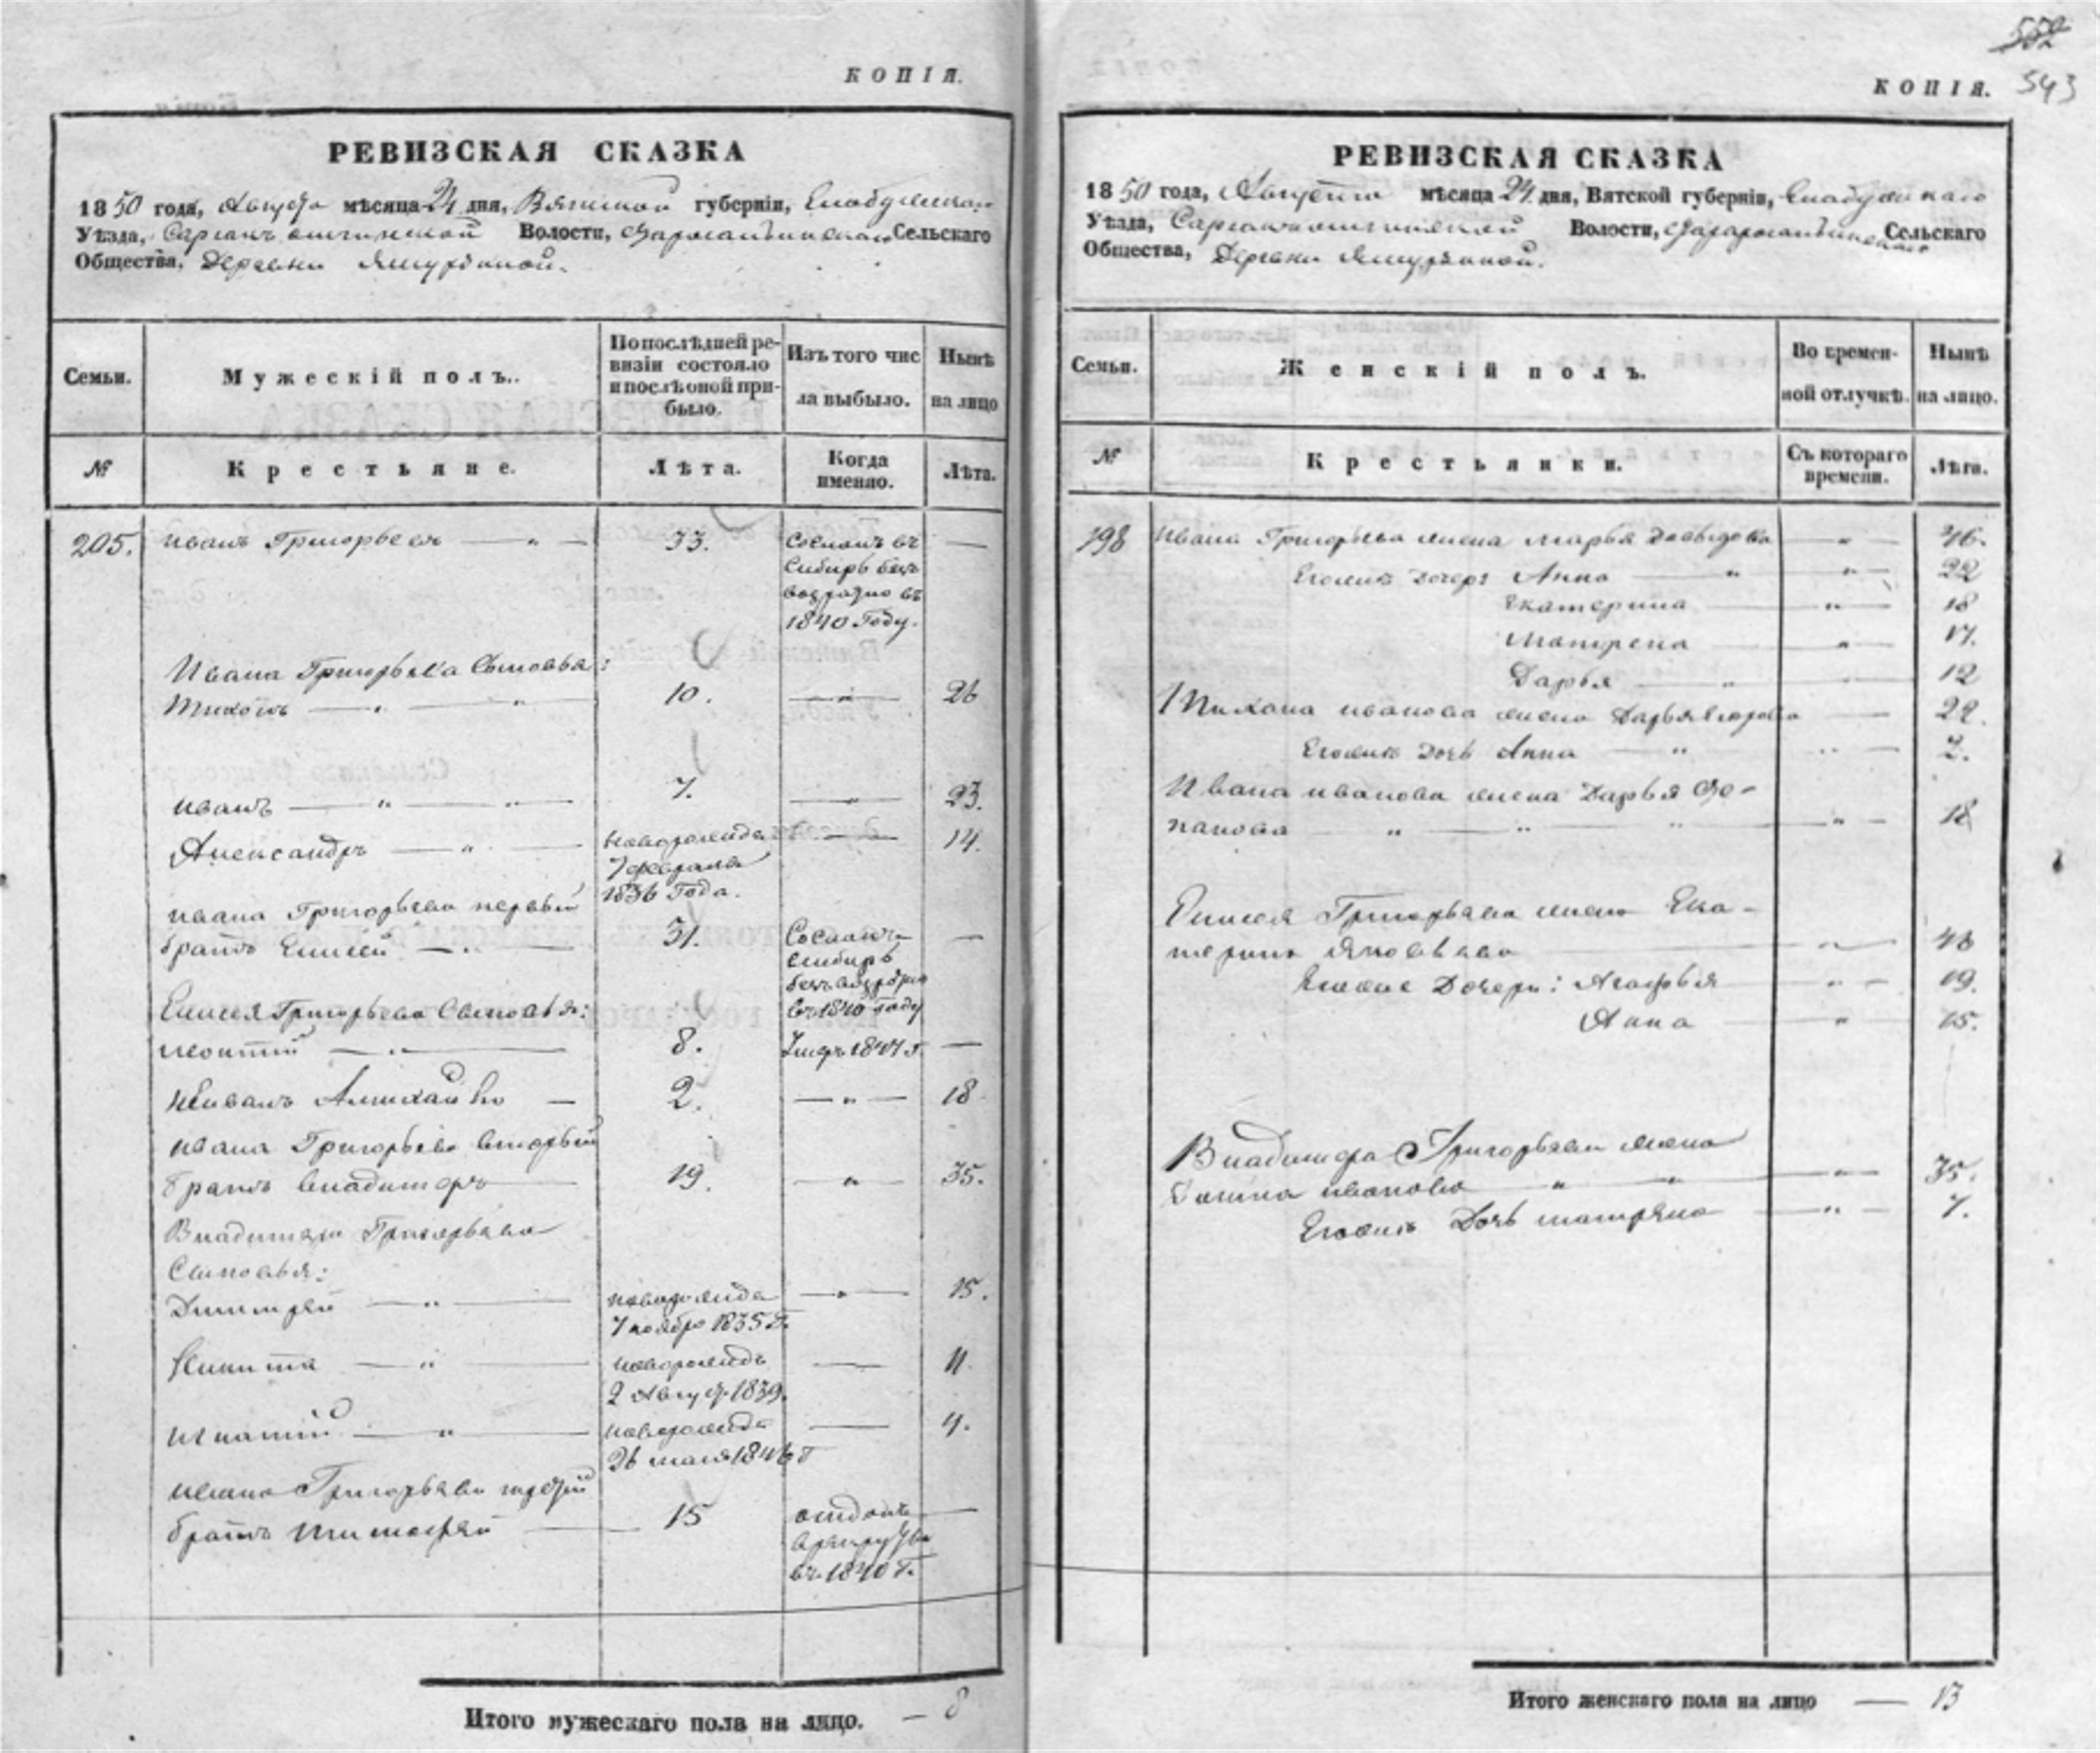 КОПІЯ.
РЕВИЗСКАЯ СКАЗКА
1850 года, Августа мѣсяца 24 дня, Вятской губерніи, Елабужскаго
Уѣзда, Волости, Сельскаго
Общества, Деревни
Семьи.
Мужескій полъ.
По послѣдней ре-
визіи состояло
и послѣ оной при-
было.
Изъ того чис
ла выбыло.
Нынѣ
на лицо
№
Крестьяне.
Лѣта.
Когда
именно.
Лѣта.
205. Иванъ Григорьевъ — " — 33. Сосланъ въ —
Сибирь безъ
возвратно въ
1840 Году.
Ивана Григорьева Сыновья:
Тихонъ — " — " — 10. — " — 26
Иванъ — " — " — 7. — " — 23.
Александръ — " — новорожд — 14.
7 февраля
1836 Года.
Ивана Григорьева первый
братъ Елисей — " — 31. Сосланъ —
въ Сибирь
безвозвратно
въ 1840 Году
Елисея Григорьева Сыновья:
Леонтий — " — 8. Умеръ 184 —
2. — " — 18
Ивана Григорьева вторый
братъ Владимеръ — 19. — " — 35.
Владимера Григорьева
Сыновья:
Дмитрей — " — новорожде — " — 15.
7 ноября 1835 Г.
Никита — " — новорожд — 11.
2 Авгус. 1839.
Игнатий — " — новорожде — 4.
26 мая 1846 Г
Ивана Григорьева третій
братъ Тимофей — 15 отданъ —
въ рекруты
въ 1840 Г.
Итого мужескаго пола на лицо. — 8
552
КОПІЯ. 543
РЕВИЗСКАЯ СКАЗКА
1850 года, Августа мѣсяца 24 дня, Вятской губерніи, Елабужскаго
Уѣзда, Волости, Сельскаго
Общества, Деревни
Семьи.
Женскій полъ.
Во времен-
ной отлучкѣ.
Нынѣ
на лицо.
№
Крестьянки.
Съ котораго
времени.
Лѣта.
198 Ивана Григорьева жена Марья Давыдова — " — 46.
Его же дочери Анна — " — " — 22
Екатерина — " — 18
Матрена — " — 17.
Дарья — " — 12
Тихона Иванова жена Дарья Егорова — 22.
Его же дочь Анна — " — 2.
Ивана Иванова жена Дарья Сте-
панова — " — " — " — " — 18
Елисея Григорьева жена Ека-
терина Яковлева — " — 48
Его же Дочери: Агафья — " — 19.
Анна — " — 15.
Владимера Григорьева жена
Иванова — " — " — " — 35.
Его же Дочь Матрена — " — 7.
Итого женскаго пола на лицо — 13